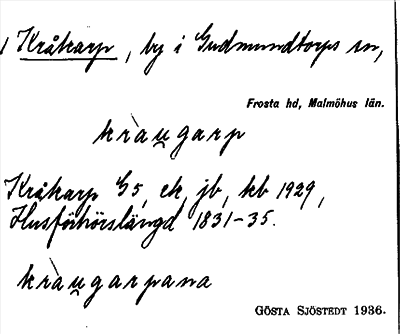 1 Kråkarp, by i Gudmundtorps sn,
Frosta hd, Malmöhus län.
kràu̯garp
Kråkarp G5, ek, jb, kb 1929,
Husförhörslängd 1831-35.
kràu̯garpana
GÖSTA SJÖSTEDT 1936.